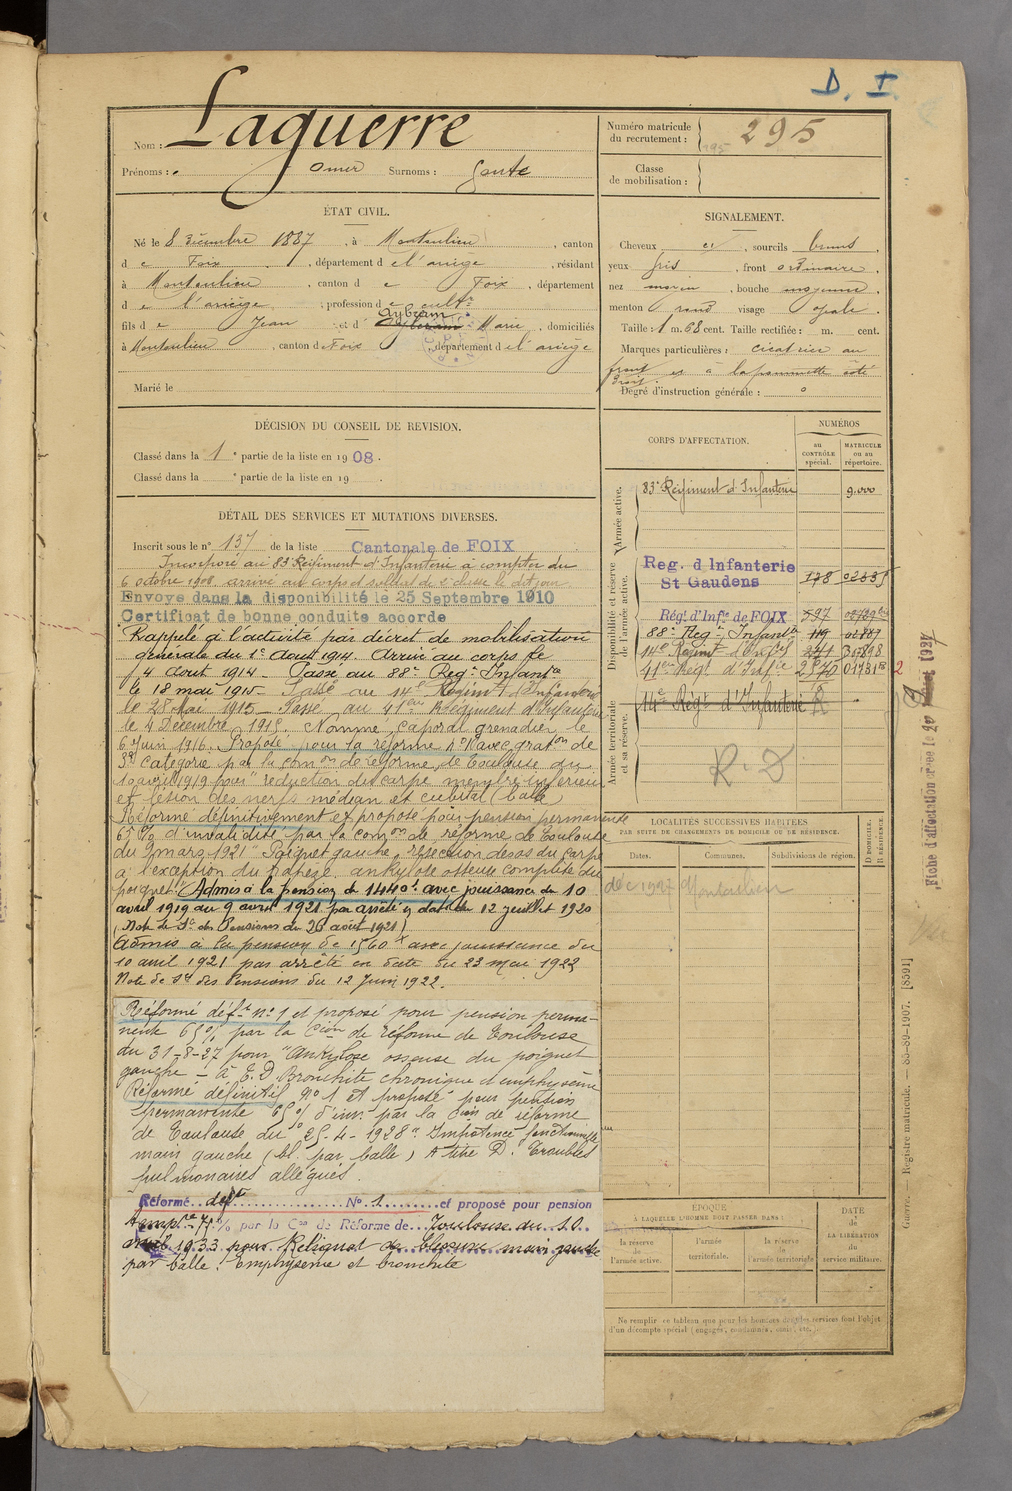 D. I.
Nom : Laguerre
Prénoms : Omer Surnoms :
Numéro matricule du recrutement : 295
Classe de mobilisation :
ÉTAT CIVIL.
Né le 8 décembre 1887, à Montoulieu, canton
de Foix, département de l'ariège, résidant
à Montoulieu, canton de Foix, département
de l'ariège, profession de cultr
fils de Jean et d' Aybram Marie, domiciliés
à Montoulieu, canton de Foix, département de l'ariège
Marié le
SIGNALEMENT.
Cheveux et, sourcils bruns,
yeux gris, front ordinaire,
nez moyen, bouche moyenne,
menton rond visage ovale.
Taille : 1 m. 68 cent. Taille rectifiée : m. cent.
Marques particulières : cicatrice au
front et à la pommette côté
droit.
Degré d'instruction générale : 0
DÉCISION DU CONSEIL DE REVISION.
Classé dans la 1e partie de la liste en 1908.
Classé dans la e partie de la liste en 19 .
DÉTAIL DES SERVICES ET MUTATIONS DIVERSES.
Inscrit sous le n° 137 de la liste Cantonale de FOIX
Incorporé au 83e Régiment d'Infanterie à compter du
6 octobre 1908. arrivé au corps et soldat de 2e classe le dit jour
Envoyé dans la disponibilité le 25 Septembre 1910
Certificat de bonne conduite accordé
Rappelé à l'activité par décret de mobilisation
générale du 1er Aout 1914. Arrivé au corps le
4 Aout 1914. Passé au 88e Regt Infantie
le 18 mai 1915. Passé au 14e Régimt d'Infanterie
le 28 Mai 1915. Passé au 41eme Régiment d'Infanterie
le 4 Décembre 1915. Nommé Caporal grenadier le
6 Juin 1916. Proposé pour la réforme n°1 avec graton de
3e catégorie par la comon de réforme de Toulouse du
10 avril 1919 pour "réduction du carpe membre inférieur
et lésion des nerfs médian et cubital (balle)
Réformé définitivement et proposé pour pension permanente
65 % d'invalidité par la comon de réforme de Toulouse
du 9 mars 1921 "Poignet gauche, résection des os du carpe
à l'exception du trapèze, ankylose osseuse complète du
poignet". Admis à la pension de 1440f. avec jouissance du 10
avril 1919 au 9 avril 1921 par arrêté en date du 12 juillet 1920
(Note de Sce des Pensions du 26 août 1921)
Admis à la pension de 1560 f avec jouissance du
10 avril 1921 par arrêté en date du 23 mai 1922
Note de Sce des Pensions du 12 Juin 1922.
Réformé déft n° 1 et proposé pour pension perma-
nente 65 % par la Con de réforme de Toulouse
du 31-8-27 pour "Ankylose osseuse du poignet
gauche - à E.D. Bronchite chronique et emphysème
Réformé définitif N° 1 et proposé pour pension
permanente 65 % d'inv. par la Con de réforme
de Toulouse du 25-4-1928 "Impotence fonctionnelle
main gauche (bl. par balle) A titre D. Troubles
pulmonaires allégués.
Réformé déft N° 1 et proposé pour pension
% par la Con de Réforme de Toulouse du 10
1933 pour Reliquat de blessure main gauche
par balle. Emphysème et bronchite
CORPS D'AFFECTATION.
NUMÉROS
au CONTRÔLE spécial.
MATRICULE ou au répertoire.
Armée active.
83e Régiment d'Infanterie 9.000
Disponibilité et réserve de l'armée active.
Reg. d Infanterie
St Gaudens 138 02335
Régt d'Inf. de FOIX 597
88e Regt Infantie 119 02887
14e Régimt d'Infie 241 31898
41eme Régt d'Infie 2570 01731
Armée territoriale et sa réserve.
14e Régt d'Infanterie R
R. D
LOCALITÉS SUCCESSIVES HABITÉES
PAR SUITE DE CHANGEMENTS DE DOMICILE OU DE RÉSIDENCE.
D DOMICILE. R RÉSIDENCE.
Dates. Communes. Subdivisions de région.
déc 1927 Montoulieu
ÉPOQUE
À LAQUELLE L'HOMME DOIT PASSER DANS :
la réserve de l'armée active.
l'armée territoriale.
la réserve de l'armée territoriale
DATE de LA LIBÉRATION du service militaire.
Ne remplir ce tableau que pour les hommes dont les services font l'objet
d'un décompte spécial (engagés, condamnés, omis, etc.).
Guerre. — Registre matricule. — 83-89-1907. [8591]